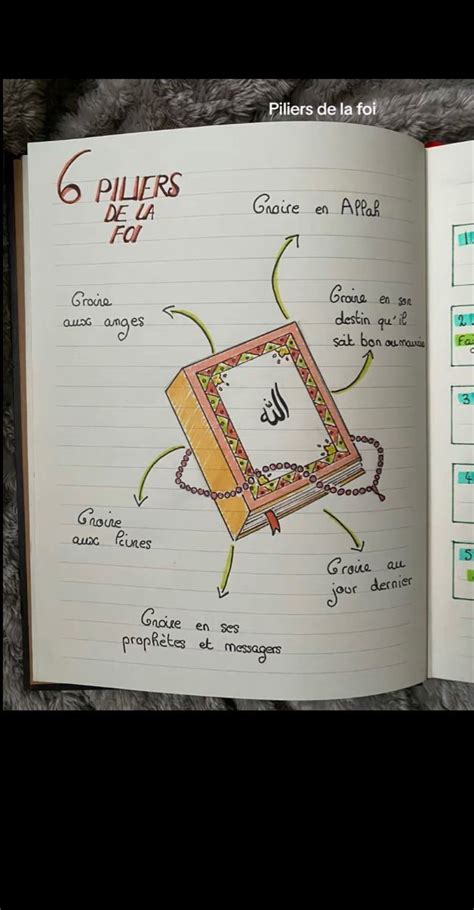 Piliers de la foi
6 PILIERS
DE LA
FOI
Croire en Allah
Croire
aux anges
Croire en son
destin qu'il
soit bon ou mauvais
الله
Croire
aux livres
Croire au
jour dernier
Croire en ses
prophètes et messagers
1
2
Fa
3
4
5